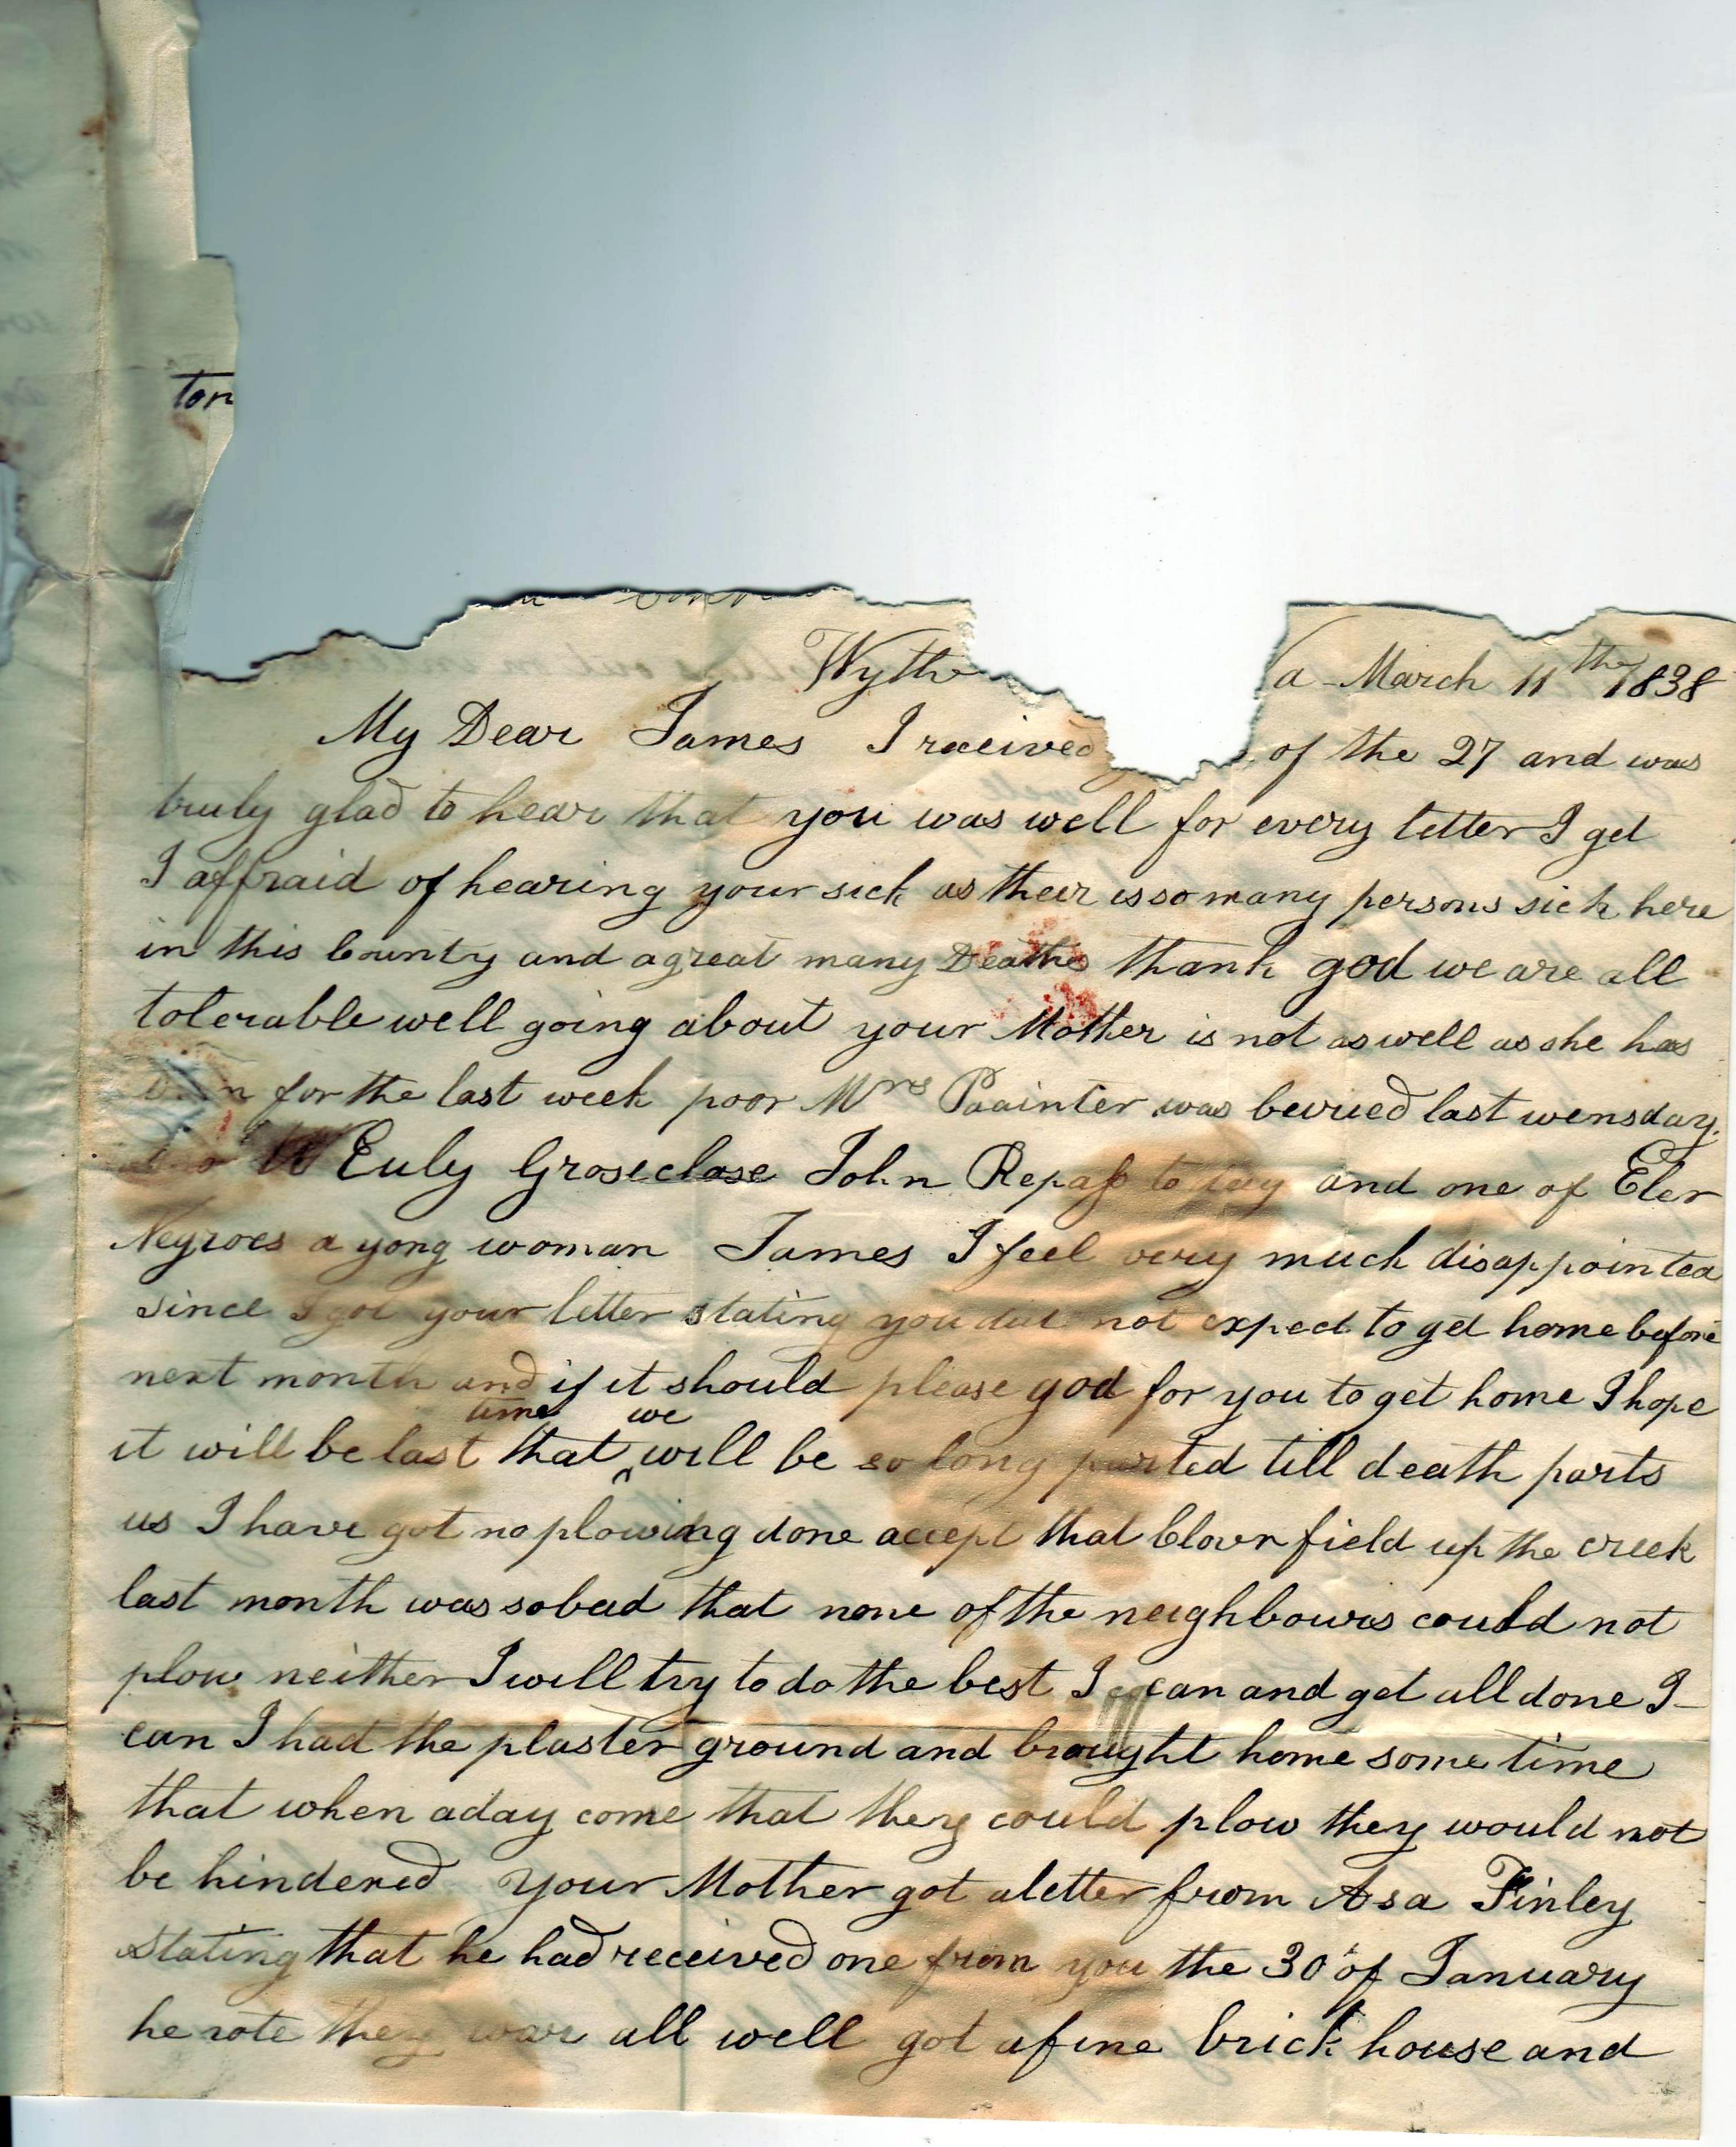 ton
Wythe a - March 11th 1838
My Dear James I received of the 27 and was
truly glad to hear that you was well for every letter I get
I affraid of hearing your sick as their is so many persons sick here
in this County and a great many Deaths thank god we are all
tolerable well going about your Mother is not as well as she has
for the last week poor Mrs Paainter was beried last wensday
Euly Groseclose John Repass to day and one of Eler
Negroes a yong woman James I feel very much disappointed
since I got your letter stating you did not expect to get home before
next month and if it should please god for you to get home I hope
time we
it will be last that will be so long parted till death parts
us I have got no plowing done accept that Clover field up the creek
last month was so bad that none of the neighbours could not
plow neither I will try to do the best I can and get all done I
can I had the plaster ground and brought home some time
that when a day come that they could plow they would not
be hindered your Mother got a letter from Asa Finley
stating that he had received one from you the 30 of January
he rote they war all well got a fine brick house and